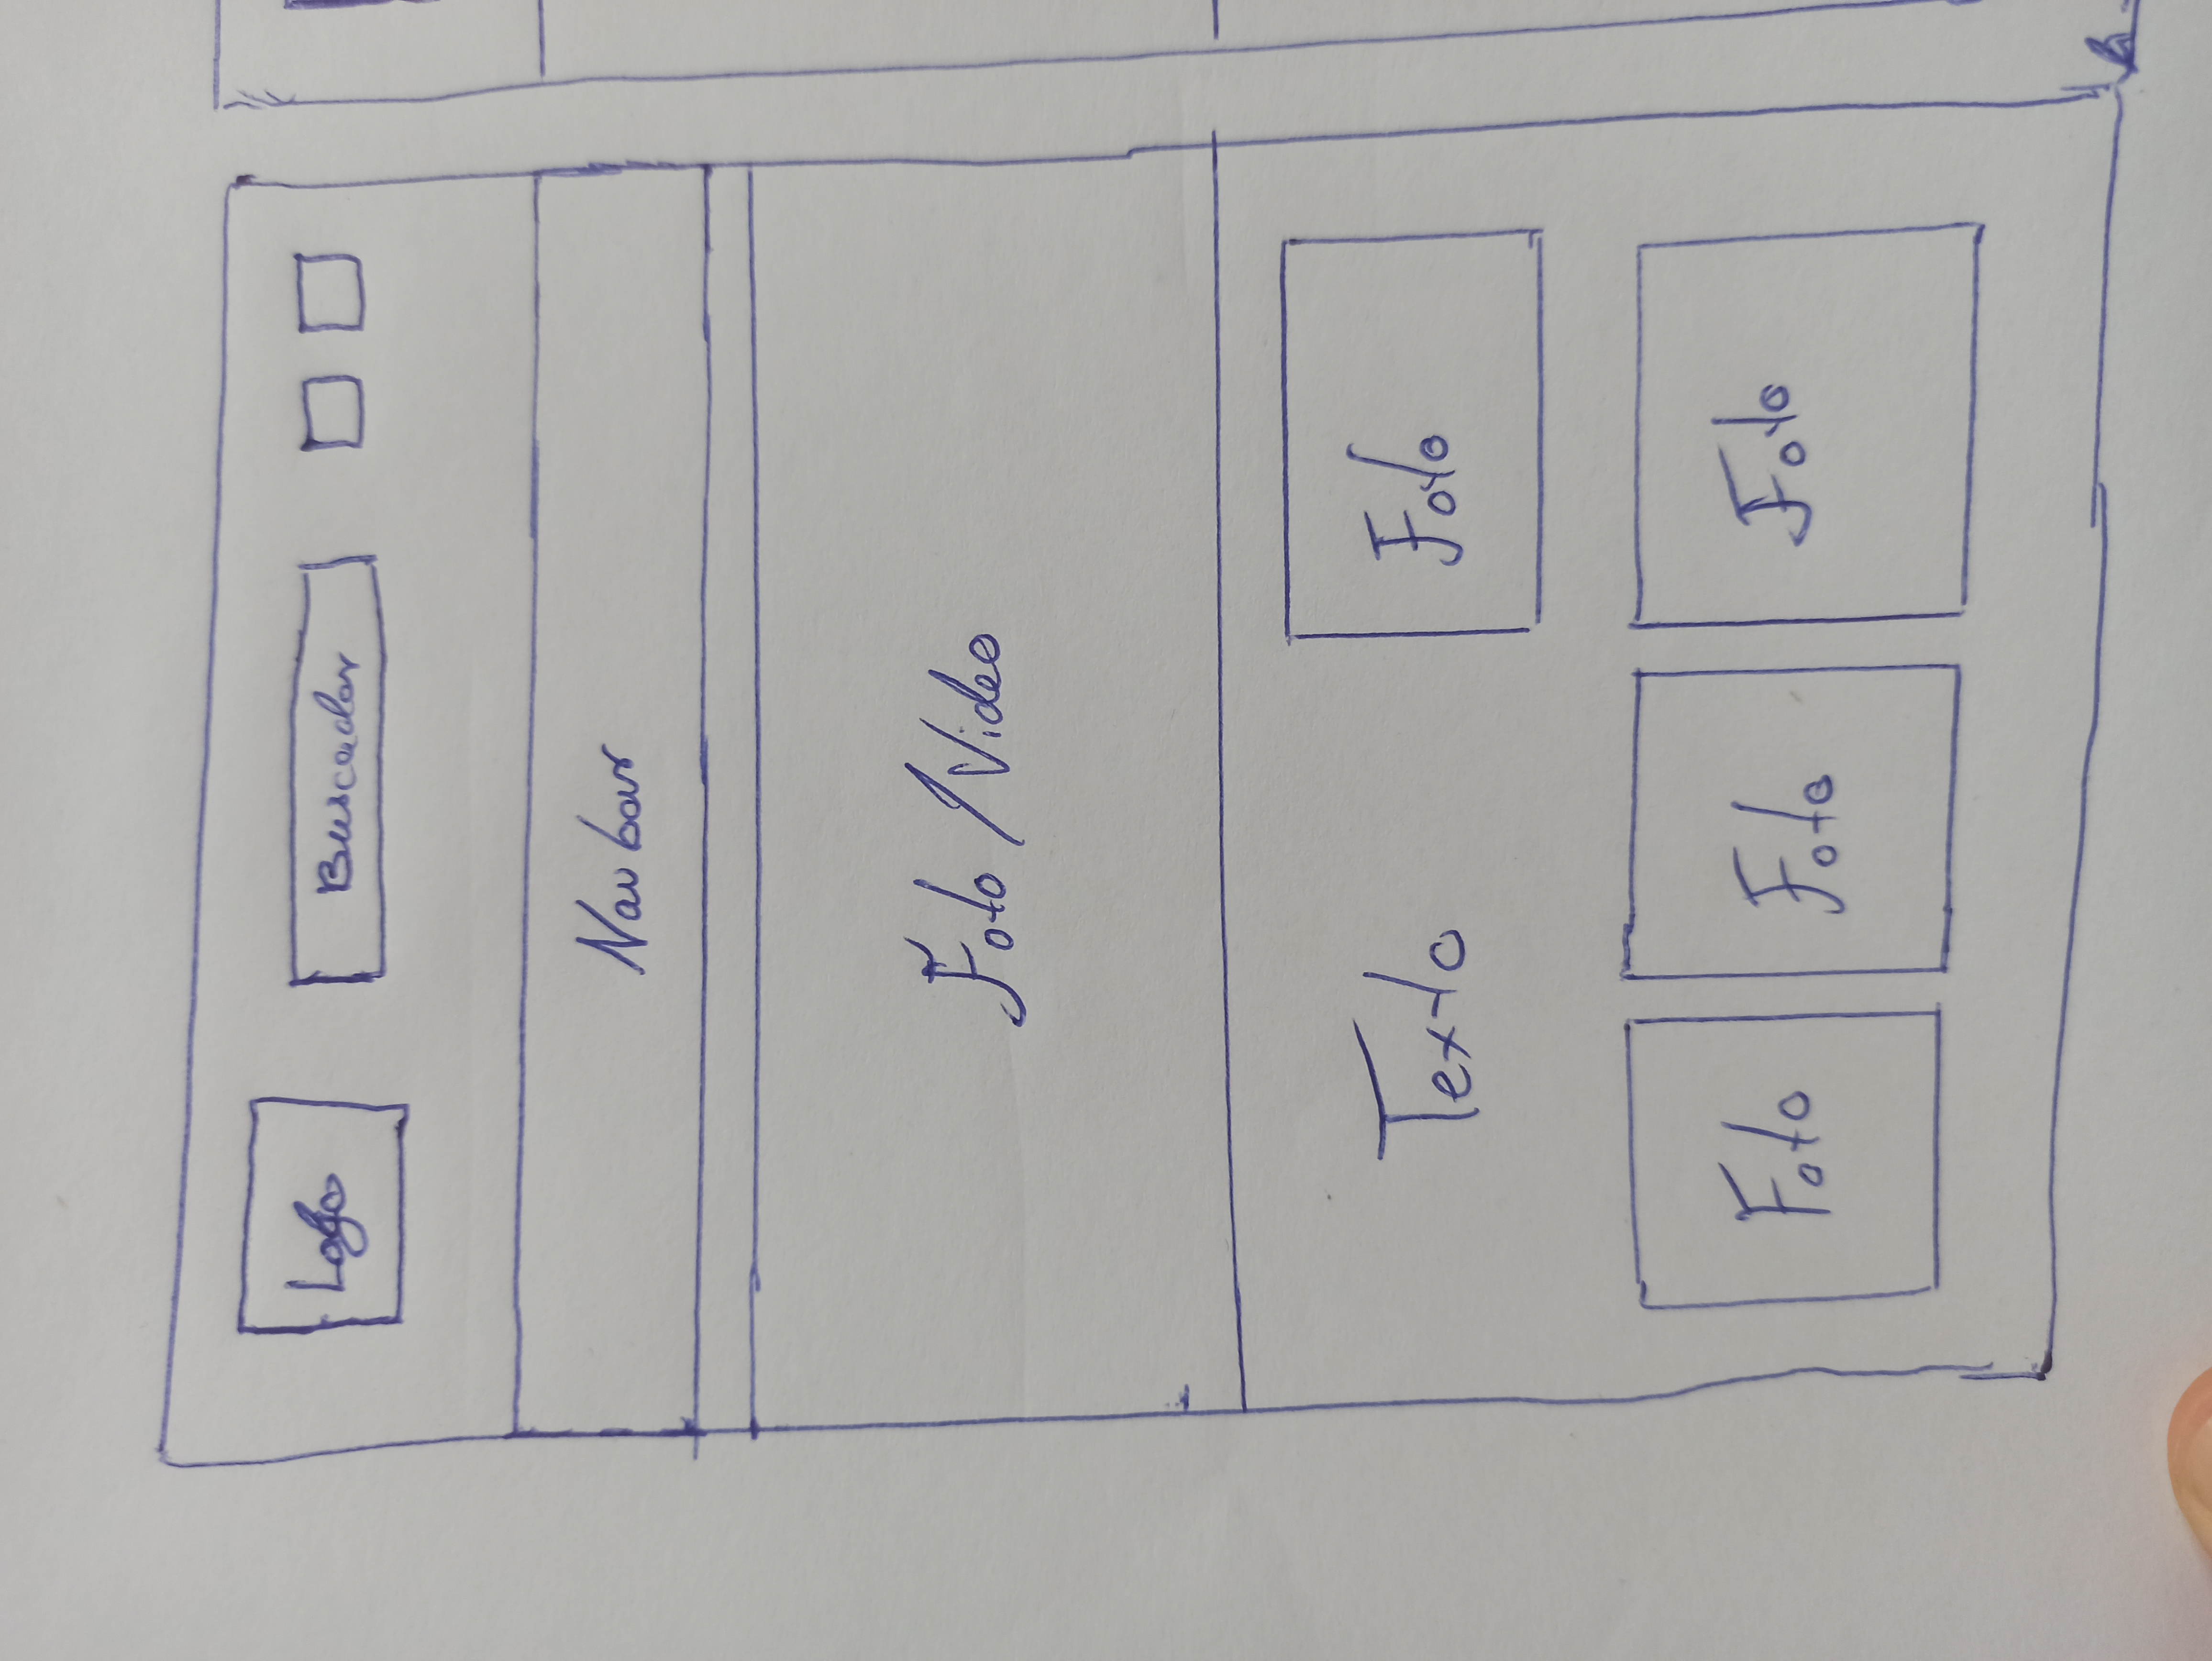 Logo
Buscador
Navbar
Foto / Video
Texto
Foto
Foto
Foto
Foto